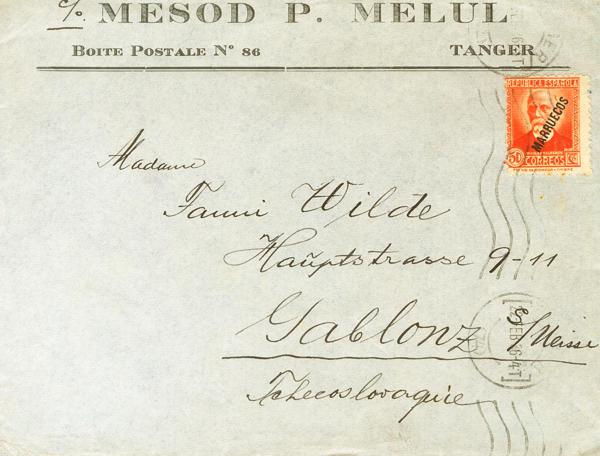 c/o. MESOD P. MELUL
BOITE POSTALE Nº 86 TANGER
REPUBLICA ESPAÑOLA
MARRUECOS
50 CORREOS CTS
Madame
Fanni Wilde
Hauptstrasse 9-11
Gablonz a/Neisse
Tchecoslovaquie
FEB 36-4T